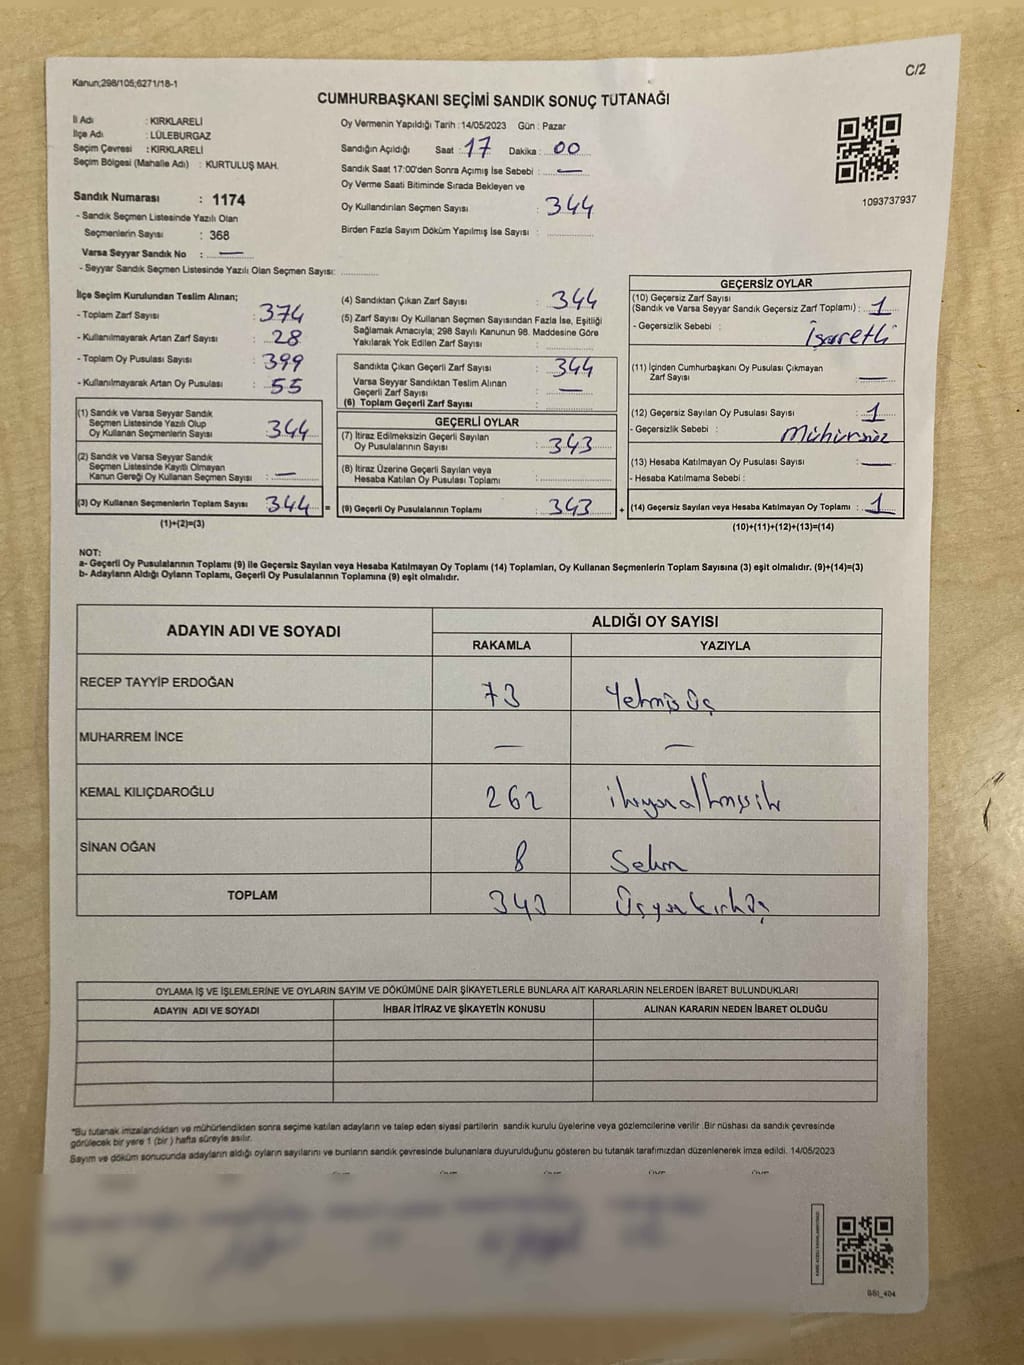 Kanun;298/105;6271/18-1
C/2
CUMHURBAŞKANI SEÇİMİ SANDIK SONUÇ TUTANAĞI
İl Adı : KIRKLARELİ
İlçe Adı : LÜLEBURGAZ
Seçim Çevresi : KIRKLARELİ
Seçim Bölgesi (Mahalle Adı) : KURTULUŞ MAH.
Sandık Numarası : 1174
- Sandık Seçmen Listesinde Yazılı Olan
Seçmenlerin Sayısı : 368
Varsa Seyyar Sandık No : —
- Seyyar Sandık Seçmen Listesinde Yazılı Olan Seçmen Sayısı:
Oy Vermenin Yapıldığı Tarih : 14/05/2023 Gün : Pazar
Sandığın Açıldığı Saat : 17 Dakika : 00
Sandık Saat 17:00'den Sonra Açımış İse Sebebi : —
Oy Verme Saati Bitiminde Sırada Bekleyen ve
Oy Kullandırılan Seçmen Sayısı : 344
Birden Fazla Sayım Döküm Yapılmış İse Sayısı :
1093737937
İlçe Seçim Kurulundan Teslim Alınan;
- Toplam Zarf Sayısı : 374
- Kullanılmayarak Artan Zarf Sayısı : 28
- Toplam Oy Pusulası Sayısı : 399
- Kullanılmayarak Artan Oy Pusulası : 55
(1) Sandık ve Varsa Seyyar Sandık
Seçmen Listesinde Yazılı Olup
Oy Kullanan Seçmenlerin Sayısı : 344
(2) Sandık ve Varsa Seyyar Sandık
Seçmen Listesinde Kayıtlı Olmayan
Kanun Gereği Oy Kullanan Seçmen Sayısı : —
(3) Oy Kullanan Seçmenlerin Toplam Sayısı : 344 =
(1)+(2)=(3)
(4) Sandıktan Çıkan Zarf Sayısı : 344
(5) Zarf Sayısı Oy Kullanan Seçmen Sayısından Fazla İse, Eşitliği
Sağlamak Amacıyla; 298 Sayılı Kanunun 98. Maddesine Göre
Yakılarak Yok Edilen Zarf Sayısı :
Sandıkta Çıkan Geçerli Zarf Sayısı : 344
Varsa Seyyar Sandıktan Teslim Alınan
Geçerli Zarf Sayısı : —
(6) Toplam Geçerli Zarf Sayısı :
GEÇERLİ OYLAR
(7) İtiraz Edilmeksizin Geçerli Sayılan
Oy Pusulalarının Sayısı : 343
(8) İtiraz Üzerine Geçerli Sayılan veya
Hesaba Katılan Oy Pusulası Toplamı :
(9) Geçerli Oy Pusulalarının Toplamı : 343 +
GEÇERSİZ OYLAR
(10) Geçersiz Zarf Sayısı
(Sandık ve Varsa Seyyar Sandık Geçersiz Zarf Toplamı) : 1
- Geçersizlik Sebebi : İşaretli
(11) İçinden Cumhurbaşkanı Oy Pusulası Çıkmayan
Zarf Sayısı : —
(12) Geçersiz Sayılan Oy Pusulası Sayısı : 1
- Geçersizlik Sebebi : Mühürsüz
(13) Hesaba Katılmayan Oy Pusulası Sayısı : —
- Hesaba Katılmama Sebebi :
(14) Geçersiz Sayılan veya Hesaba Katılmayan Oy Toplamı : 1
(10)+(11)+(12)+(13)=(14)
NOT:
a- Geçerli Oy Pusulalarının Toplamı (9) ile Geçersiz Sayılan veya Hesaba Katılmayan Oy Toplamı (14) Toplamları, Oy Kullanan Seçmenlerin Toplam Sayısına (3) eşit olmalıdır. (9)+(14)=(3)
b- Adayların Aldığı Oyların Toplamı, Geçerli Oy Pusulalarının Toplamına (9) eşit olmalıdır.
ADAYIN ADI VE SOYADI
ALDIĞI OY SAYISI
RAKAMLA YAZIYLA
RECEP TAYYİP ERDOĞAN 73 Yetmiş üç
MUHARREM İNCE — —
KEMAL KILIÇDAROĞLU 262 ikiyüzaltmışiki
SİNAN OĞAN 8 Sekiz
TOPLAM 343 Üçyüzkırküç
OYLAMA İŞ VE İŞLEMLERİNE VE OYLARIN SAYIM VE DÖKÜMÜNE DAİR ŞİKAYETLERLE BUNLARA AİT KARARLARIN NELERDEN İBARET BULUNDUKLARI
ADAYIN ADI VE SOYADI İHBAR İTİRAZ VE ŞİKAYETİN KONUSU ALINAN KARARIN NEDEN İBARET OLDUĞU
*Bu tutanak imzalandıktan ve mühürlendikten sonra seçime katılan adayların ve talep eden siyasi partilerin sandık kurulu üyelerine veya gözlemcilerine verilir .Bir nüshası da sandık çevresinde
görülecek bir yere 1 (bir ) hafta süreyle asılır.
Sayım ve döküm sonucunda adayların aldığı oyların sayılarını ve bunların sandık çevresinde bulunanlara duyurulduğunu gösteren bu tutanak tarafımızdan düzenlenerek imza edildi. 14/05/2023